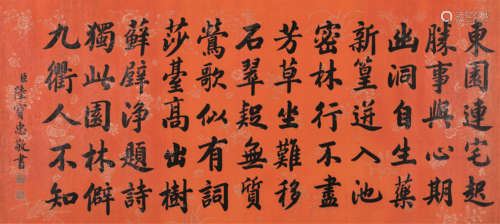 東園連宅起
勝事與心期
幽洞自生藥
新篁迸入池
密林行不盡
芳草坐難移
石翠疑無質
鶯歌似有詞
莎臺高出樹
蘚壁淨題詩
獨此園林僻
九衢人不知
臣陸寶忠敬書